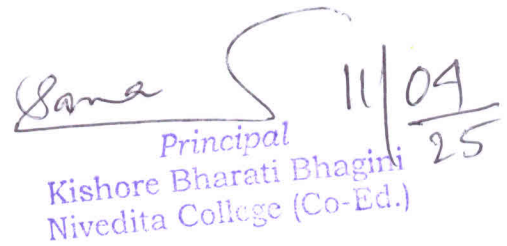 11/04/25
Principal
Kishore Bharati Bhagini
Nivedita College (Co-Ed.)